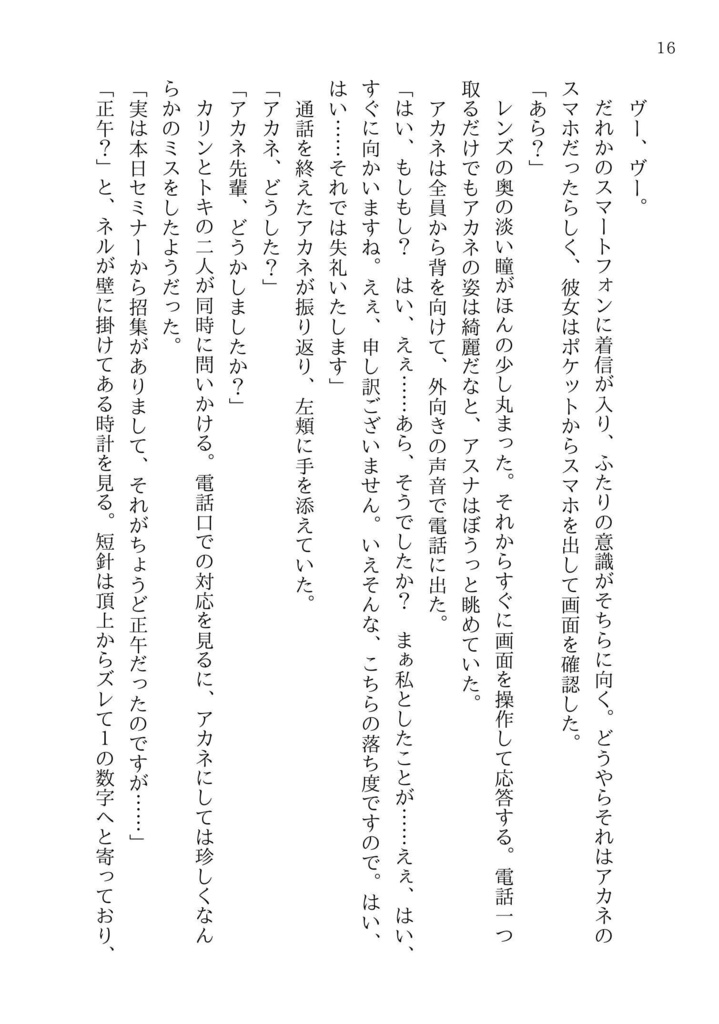 16
ヴー、ヴー。
だれかのスマートフォンに着信が入り、ふたりの意識がそちらに向く。どうやらそれはアカネの
スマホだったらしく、彼女はポケットからスマホを出して画面を確認した。
「あら？」
レンズの奥の淡い瞳がほんの少し丸まった。それからすぐに画面を操作して応答する。電話一つ
取るだけでもアカネの姿は綺麗だなと、アスナはぼうっと眺めていた。
アカネは全員から背を向けて、外向きの声音で電話に出た。
「はい、もしもし？　はい、えぇ……あら、そうでしたか？　まぁ私としたことが……えぇ、はい、
すぐに向かいますね。えぇ、申し訳ございません。いえそんな、こちらの落ち度ですので。はい、
はい……それでは失礼いたします」
通話を終えたアカネが振り返り、左頬に手を添えていた。
「アカネ、どうした？」
「アカネ先輩、どうかしましたか？」
カリンとトキの二人が同時に問いかける。電話口での対応を見るに、アカネにしては珍しくなん
らかのミスをしたようだった。
「実は本日セミナーから招集がありまして、それがちょうど正午だったのですが……」
「正午？」と、ネルが壁に掛けてある時計を見る。短針は頂上からズレて１の数字へと寄っており、